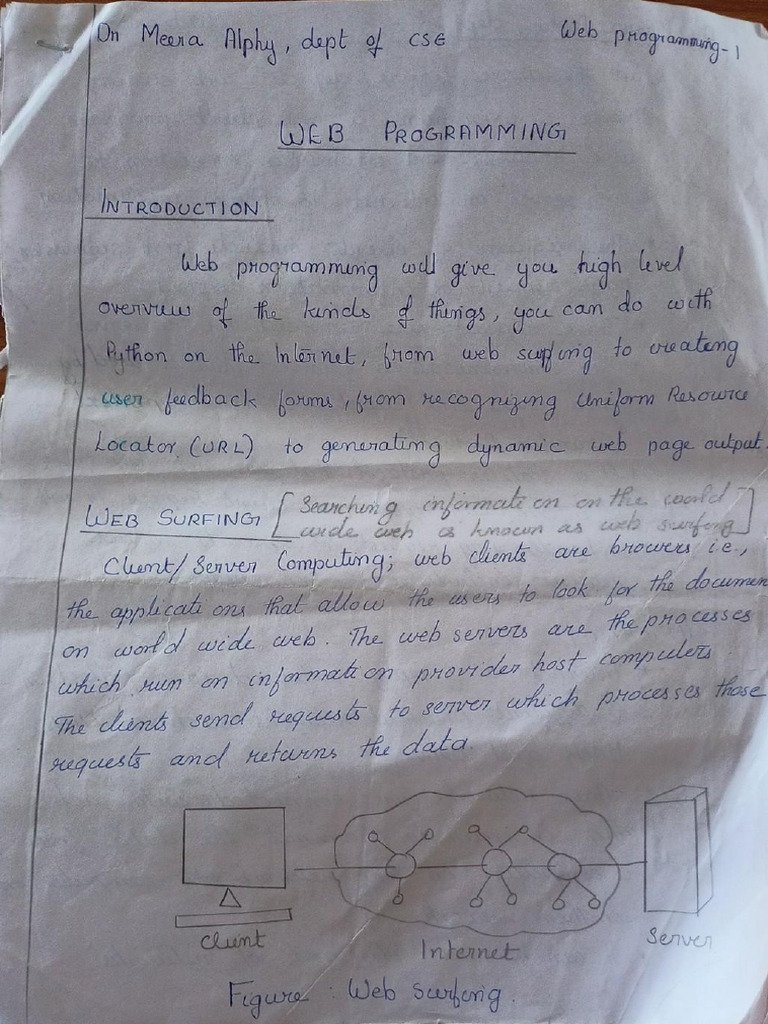 Dr Meera Alphy, dept of CSE Web programming-1
WEB PROGRAMMING
INTRODUCTION
Web programming will give you high level
overview of the kinds of things, you can do with
Python on the Internet, from web surfing to creating
user feedback forms, from recognizing Uniform Resource
Locator (URL) to generating dynamic web page output.
WEB SURFING [Searching information on the world
wide web is known as web surfing]
Client/Server Computing; web clients are browers i.e.,
the applications that allow the users to look for the documen
on world wide web. The web servers are the processes
which run on information provider host computers.
The clients send requests to server which processes those
requests and returns the data.
Client
Internet
Server
Figure : Web Surfing.